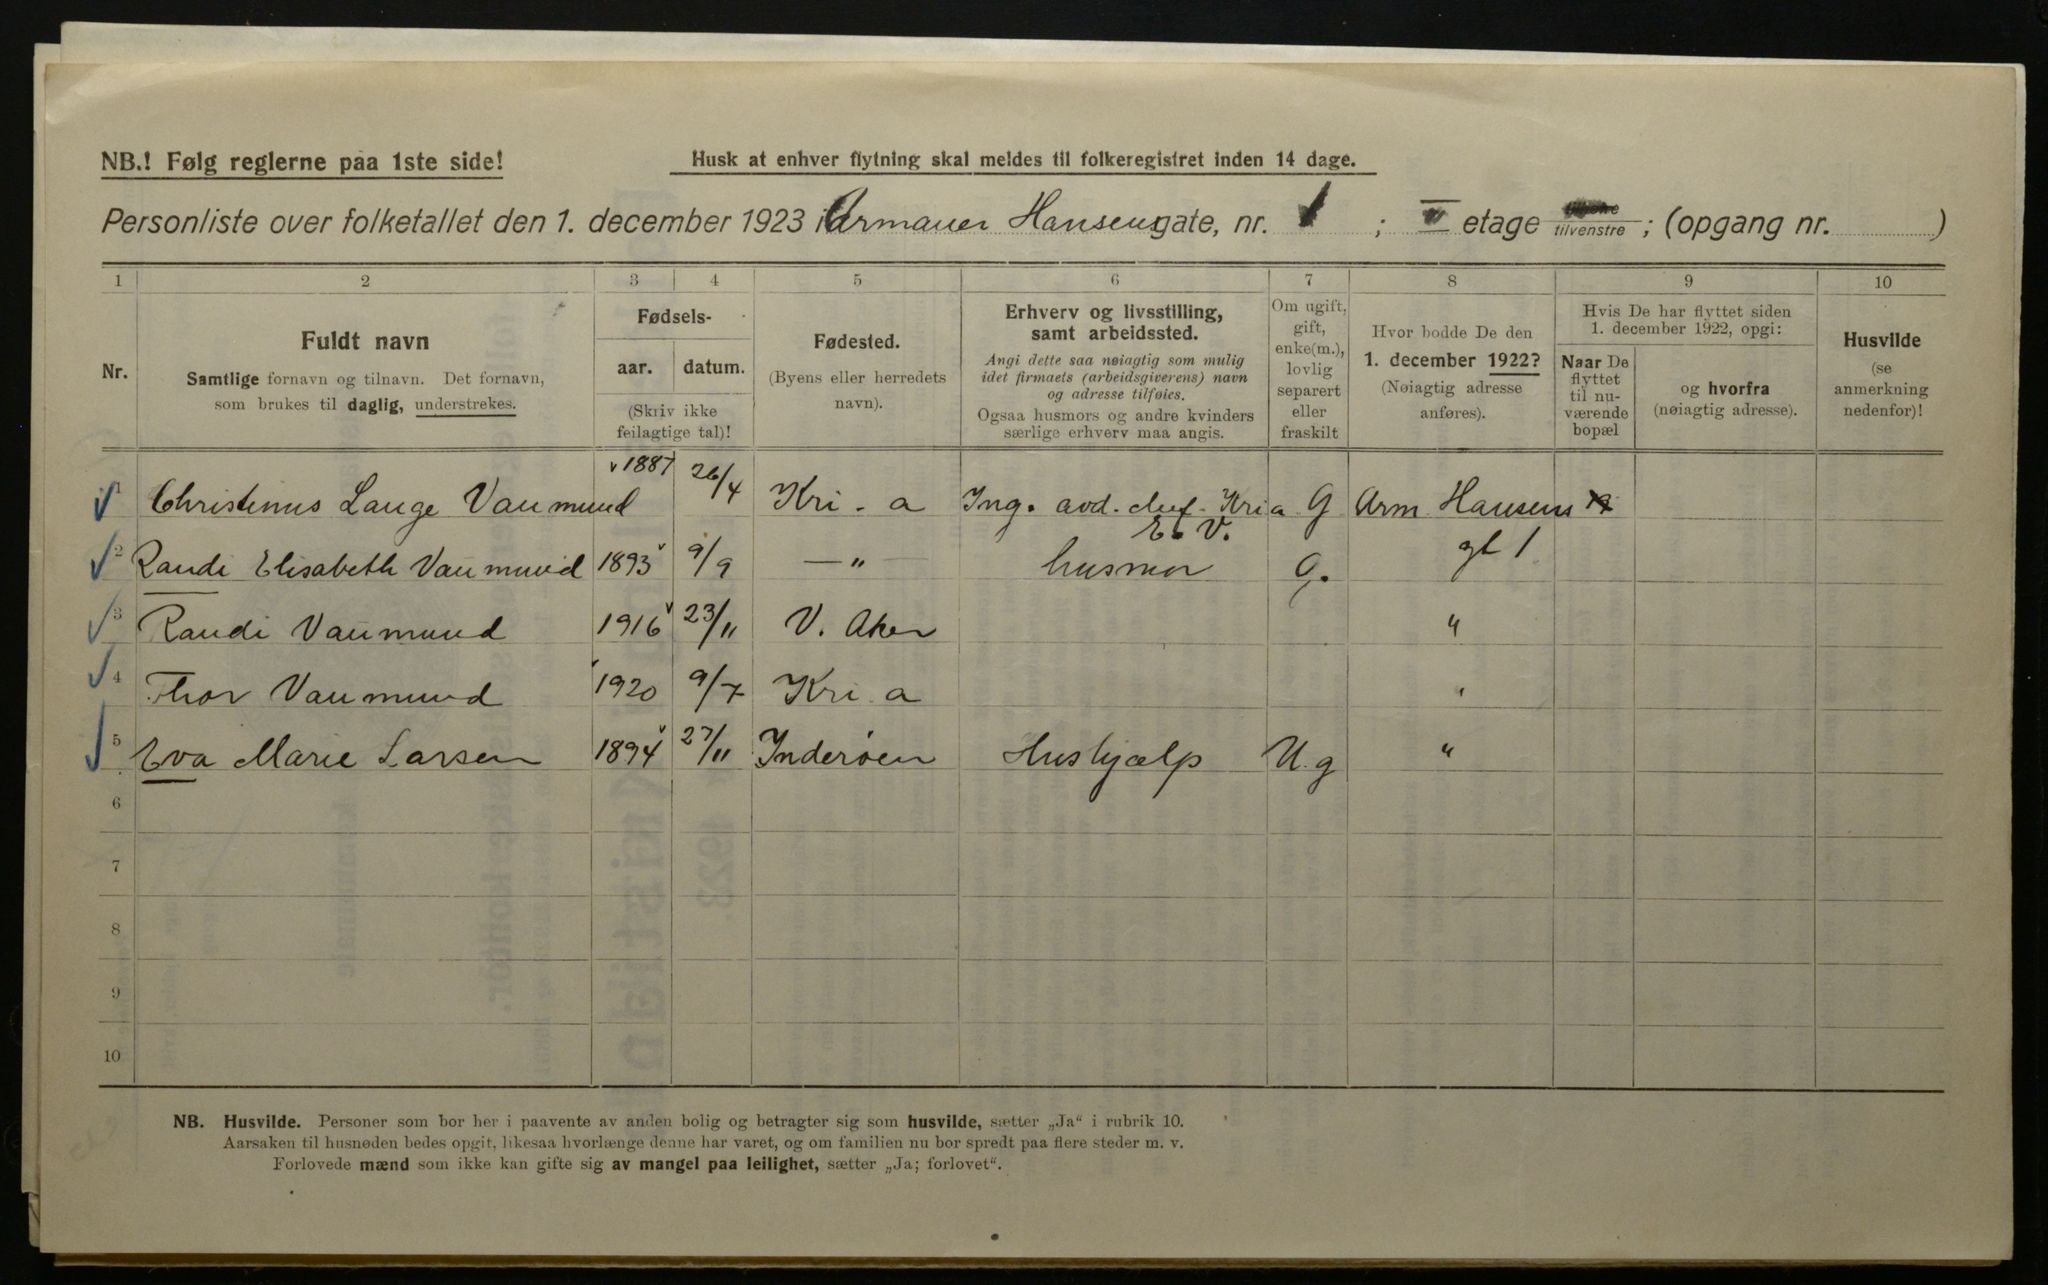 NB.! Følg reglerne paa 1ste side!
Husk at enhver flytning skal meldes til folkeregistret inden 14 dage.
Personliste over folketallet den 1. december 1923 i Armauer Hansens gate, nr. 1 ; II etage tilvenstre ; (opgang nr. )
1 2 3 4 5 6 7 8 9 10
Nr.
Fuldt navn
Samtlige fornavn og tilnavn. Det fornavn,
som brukes til daglig, understrekes.
Fødsels-
aar. datum.
(Skriv ikke
feilagtige tal)!
Fødested.
(Byens eller herredets
navn).
Erhverv og livsstilling,
samt arbeidssted.
Angi dette saa nøiagtig som mulig
idet firmaets (arbeidsgiverens) navn
og adresse tilføies.
Ogsaa husmors og andre kvinders
særlige erhverv maa angis.
Om ugift,
gift,
enke(m.),
lovlig
separert
eller
fraskilt
Hvor bodde De den
1. december 1922?
(Nøiagtig adresse
anføres).
Hvis De har flyttet siden
1. december 1922, opgi:
Naar De
flyttet
til nu-
værende
bopæl
og hvorfra
(nøiagtig adresse).
Husvilde
(se
anmerkning
nedenfor)!
1 Christinus Lange Vaumund 1887 26/4 Kri.a Ing. avd. chef. Kria E.V. G Arm. Hansens gt 1
2 Randi Elisabeth Vaumund 1893 9/9 —"— husmor G.
3 Randi Vaumund 1916 23/11 V. Aker "
4 Thor Vaumund 1920 9/7 Kri.a "
5 Eva Marie Larsen 1894 27/11 Inderøen Hushjælp U.g "
6
7
8
9
10
NB. Husvilde. Personer som bor her i paavente av anden bolig og betragter sig som husvilde, sætter „Ja“ i rubrik 10.
Aarsaken til husnøden bedes opgit, likesaa hvorlænge denne har varet, og om familien nu bor spredt paa flere steder m. v.
Forlovede mænd som ikke kan gifte sig av mangel paa leilighet, sætter „Ja; forlovet“.